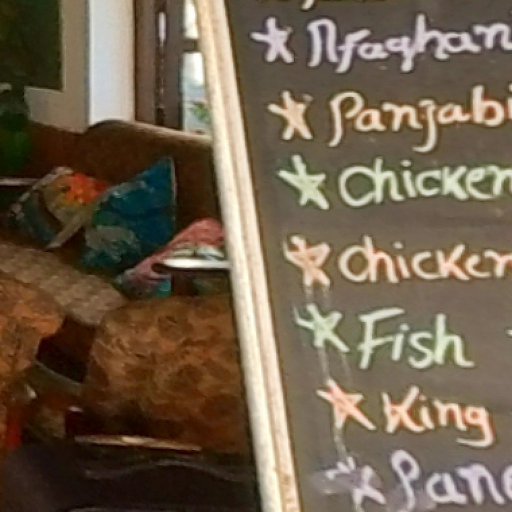 Afaghan
Panjabi
Chicken
Chicken
Fish
King
Pane